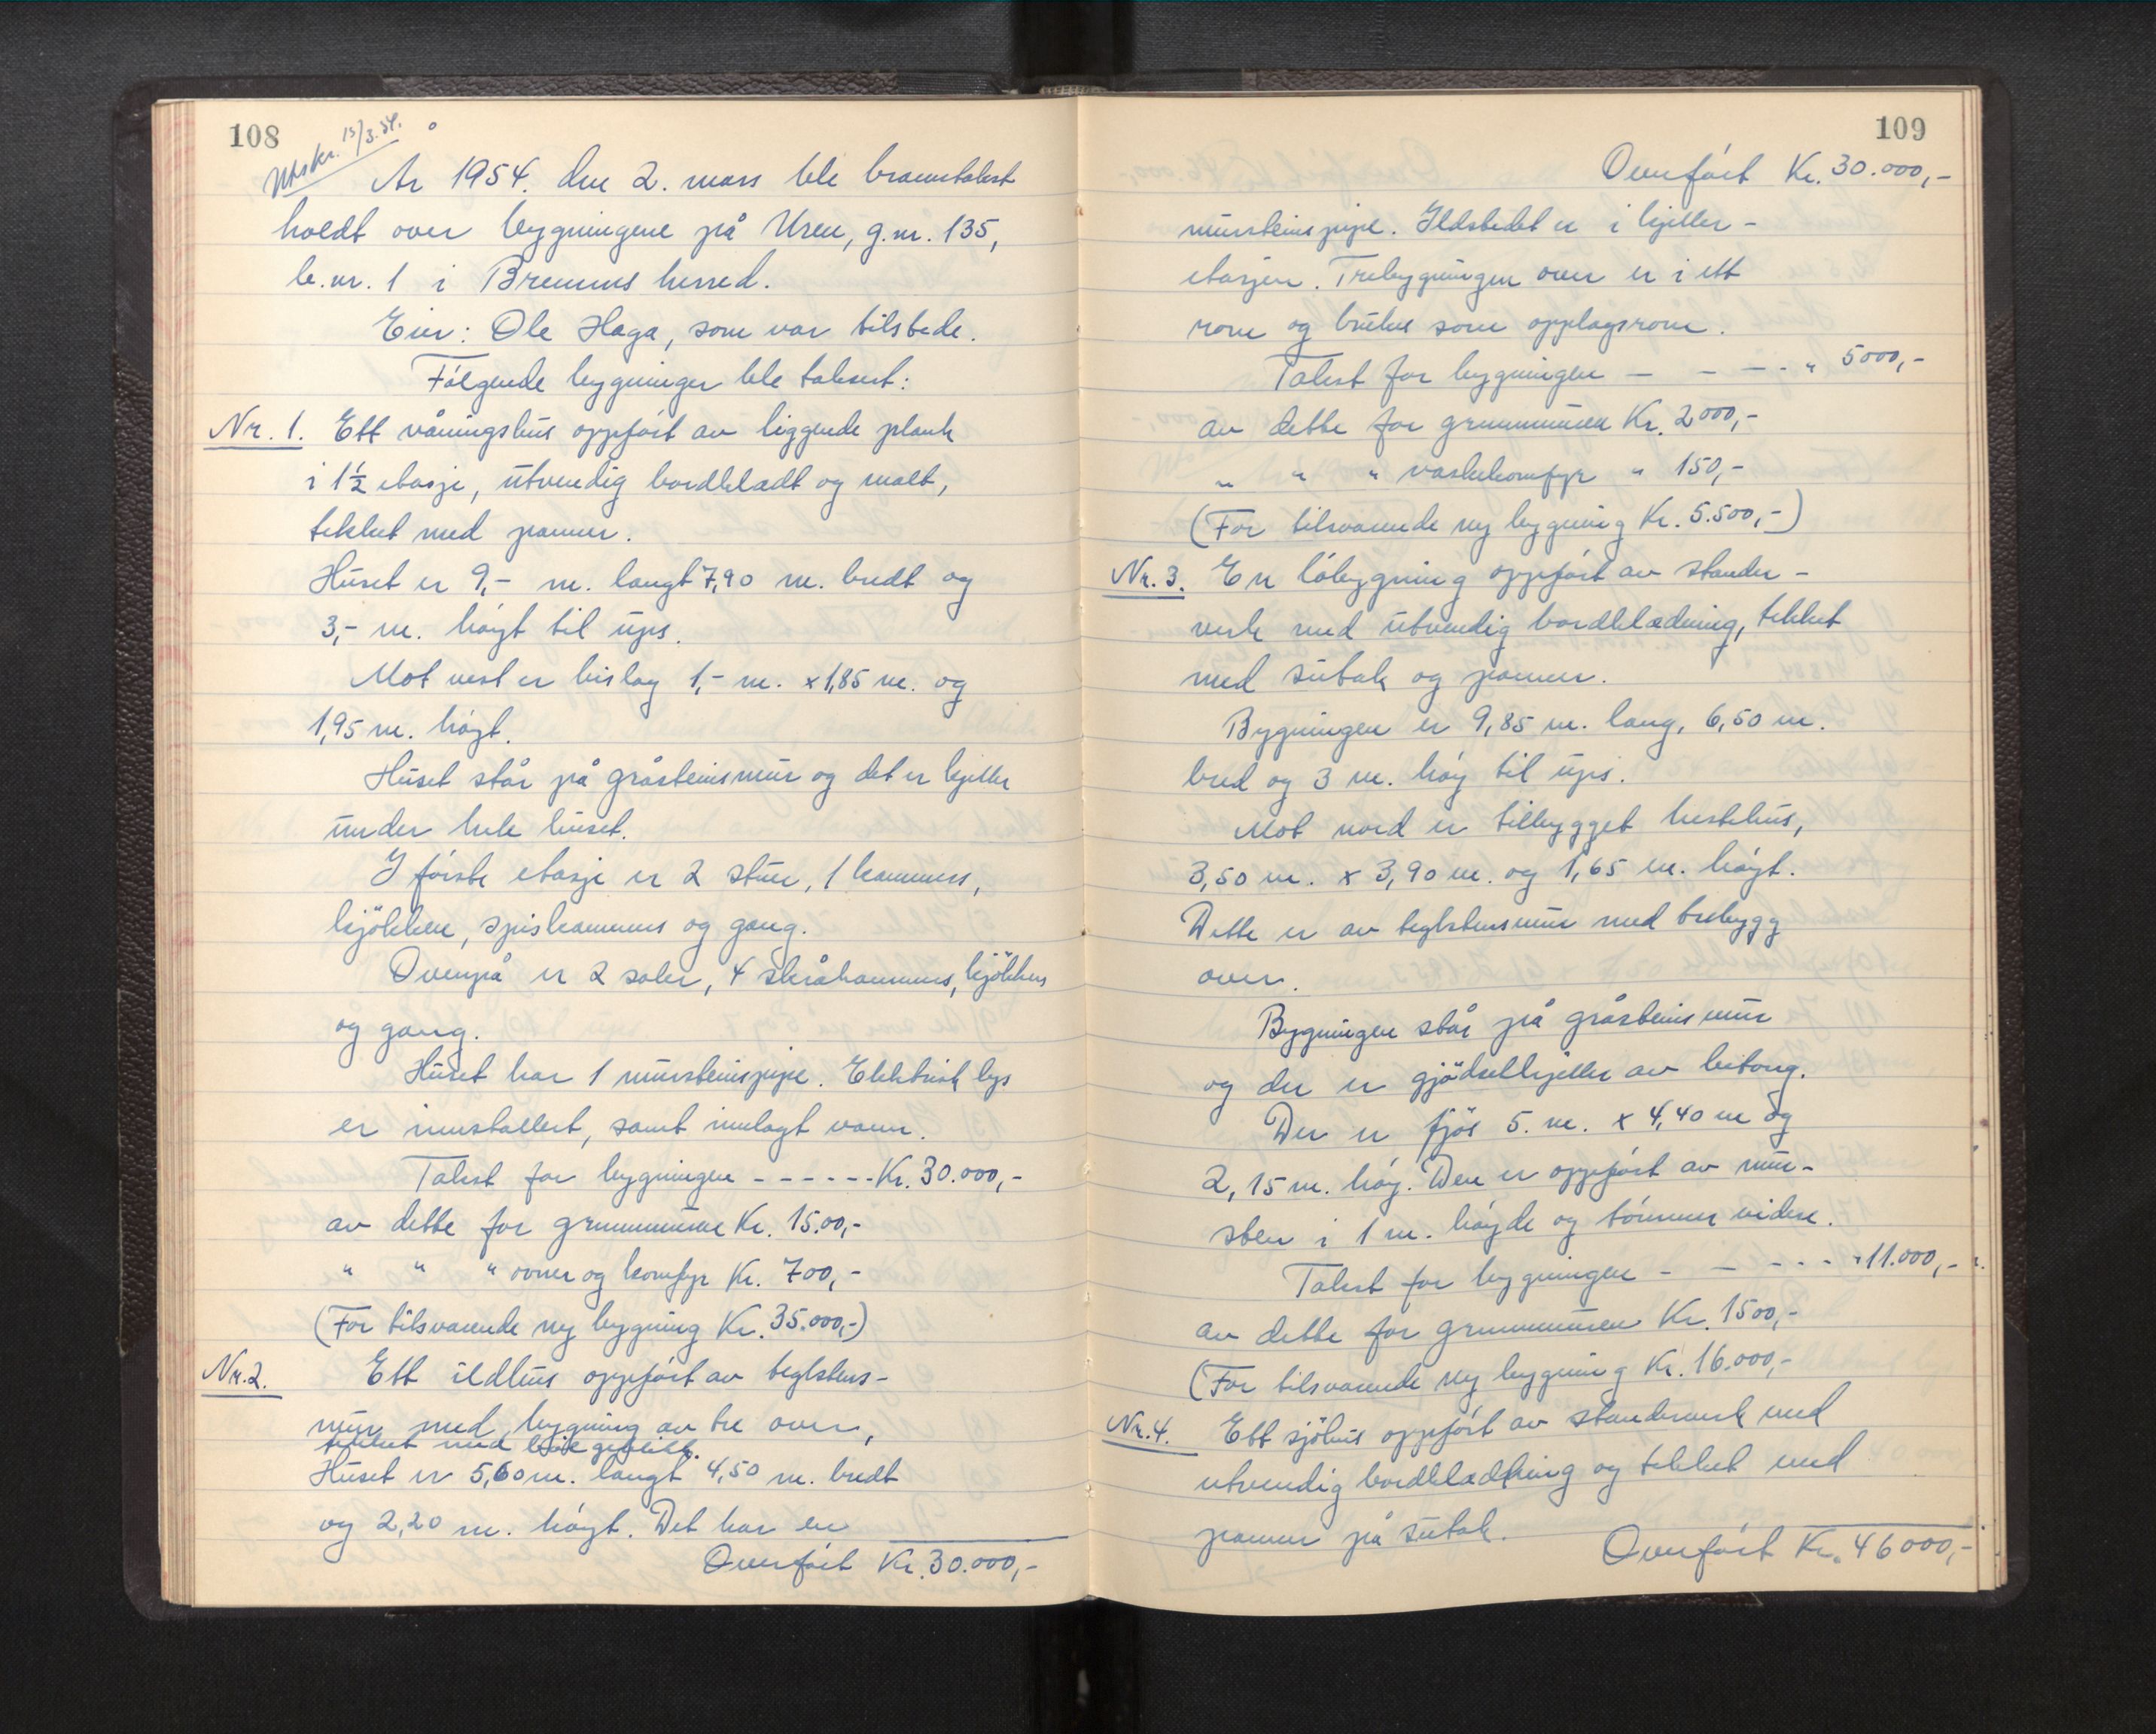 108
Utskr. 15/3.54.
År 1954. den 2. mars ble branntakst
holdt over bygningene på Uren, g.nr. 135,
b.nr. 1 i Bremnes herred.
Eier: Ole Haga, som var tilstede.
Følgende bygninger ble taksert:
Nr. 1. Ett våningshus oppført av liggende plank
i 1½ etasje, utvendig bordkledt og malt,
tekket med panner.
Huset er 9,- m. langt 7,90 m. bredt og
3,- m. høyt til ups.
Mot vest er bislag 1,- m. x 1,85 m. og
1,95 m. høyt.
Huset står på gråsteinsmur og det er kjeller
under hele huset.
I første etasje er 2 stuer, 1 kammers,
kjøkken, spiskammers og gang.
Ovenpå er 2 saler, 4 skråkammers, kjøkken
og gang.
Huset har 1 mursteinspipe. Elektrisk lys
er innstallert, samt innlagt vann.
Takst for bygningen - - - - - - Kr. 30.000,-
av dette for grunnmuren Kr. 15.00,-
" " " ovner og komfyr Kr. 700,-
(For tilsvarende ny bygning Kr. 35.000,-)
Nr. 2. Ett ildhus oppført av teglstens-
mur med bygning av tre over,
tekket med
Huset er 5,60 m. langt 4,50 m. bredt
og 2,20 m. høyt. Det har en
Overført Kr. 30.000,-
109
Overført Kr. 30.000,-
mursteinspipe. Ildstedet er i kjeller-
etasjen. Trebygningen over er i ett
rom og brukes som opplagsrom.
Takst for bygningen - - - - " 5000,-
av dette for grunnmuren Kr. 2000,-
" " " vaskekomfyr " 150,-
(For tilsvarende ny bygning Kr. 5.500,-)
Nr. 3. En løbygning oppført av stender-
verk med utvendig bordkledning, tekket
med sutak og panner.
Bygningen er 9,85 m. lang, 6,50 m.
bred og 3 m. høy til ups.
Mot nord er tilbygget hestehus,
3,50 m. x 3,90 m. og 1,65 m. høyt.
Dette er av teglstensmur med trebygg
over.
Bygningen står på gråsteinsmur
og der er gjødselkjeller av betong.
Der er fjøs 5. m. x 4,40 m og
2,15 m. høy. Den er oppført av mur-
sten i 1 m. høyde og tømmer videre.
Takst for bygningen - - - - - " 11.000,-
av dette for grunnmuren Kr. 1500,-
(For tilsvarende ny bygning Kr. 16.000,-
Nr. 4. Ett sjøhus oppført av stenderverk med
utvendig bordkledning og tekket med
panner på sutak.
Overført Kr. 46000,-